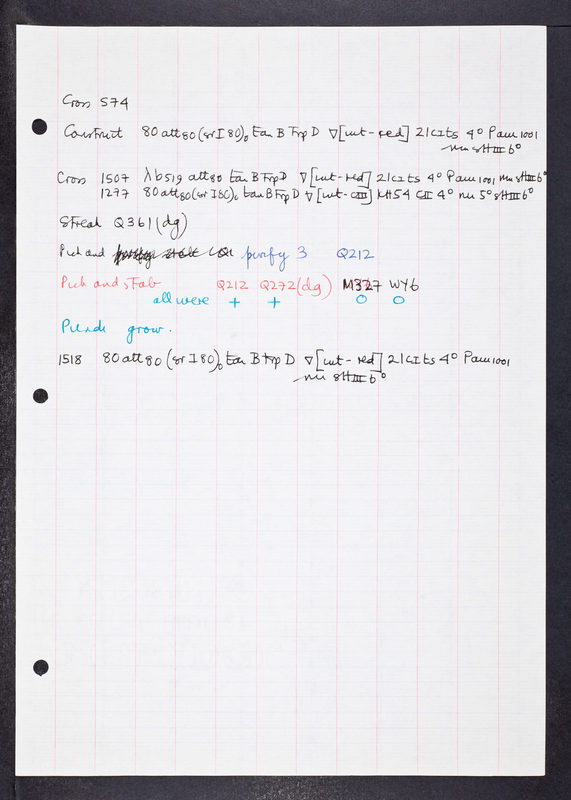 Cross 574
Construct 80 att80 (srI 80)o tan B Trp D ∇[int-red] 21 cIts 4° Pam 1001
nin sHIII 6°
Cross 1507 λb519 att80 tan B Trp D ∇[int-red] 21 cIts 4° Pam 1001, nin sHIII 6°
1277 80 att80 (srI 80)o tan B Trp D ∇[int-cIII] KH54 cII 4° nin 5° sHIII 6°
Streak Q361 (dg)
Pick and purify 3 Q212
Pick and stab Q212 Q272 (dg) M327 WY6
all were + + O O
Pick and grow.
1518 80 att80 (srI 80)o tan B Trp D ∇[int-red] 21 cIts 4° Pam 1001
nin sHIII 6°